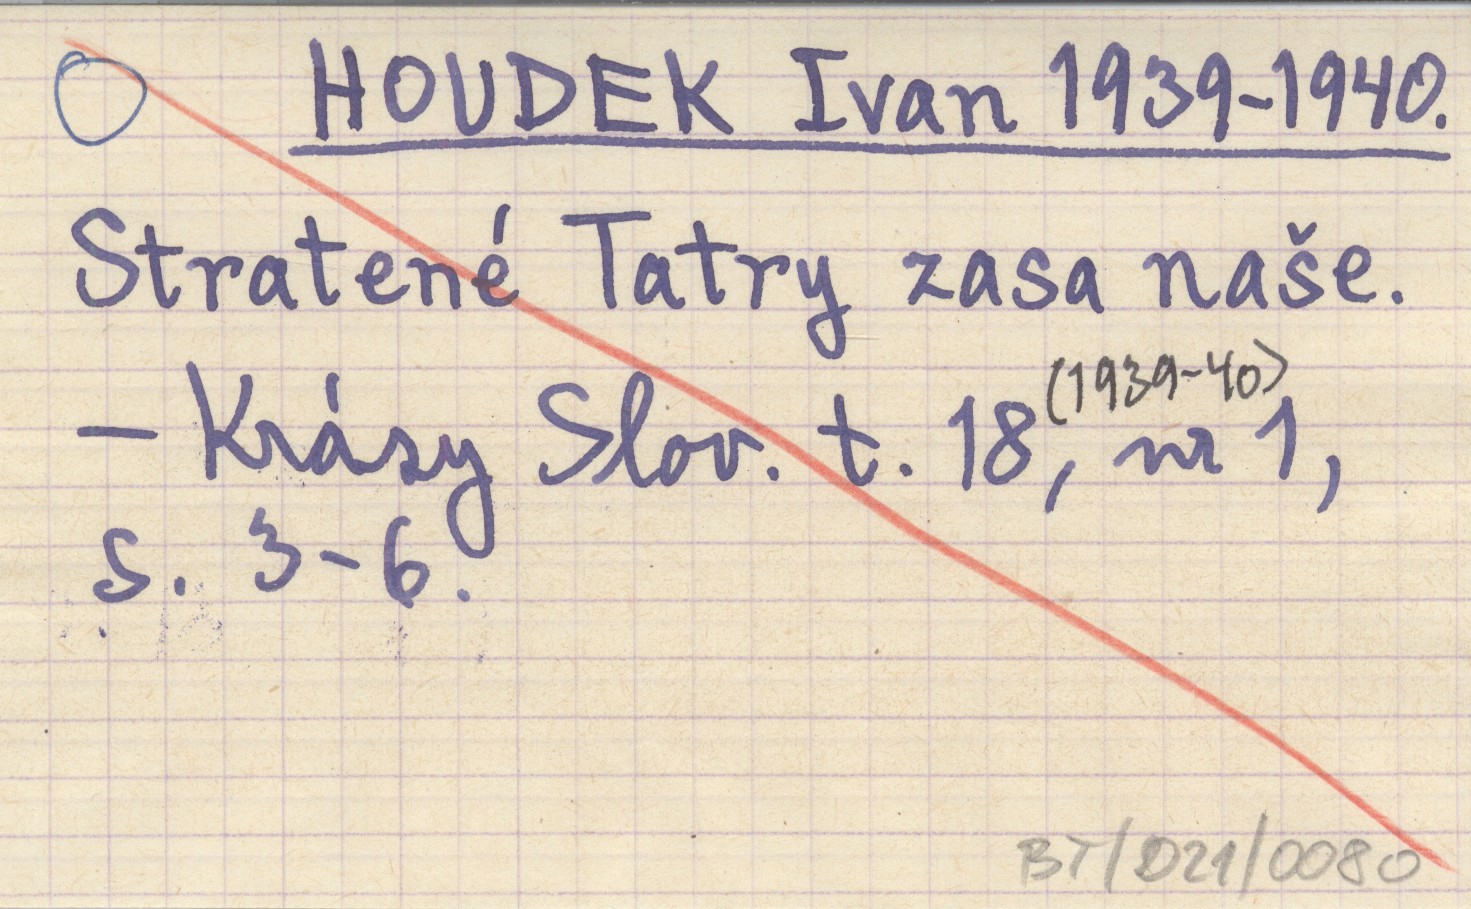 HOUDEK Ivan 1939-1940.
Stratené Tatry zasa naše.
(1939-40)
- Krásy Slov. t. 18, nr 1,
s. 3-6.
BT/D21/0080